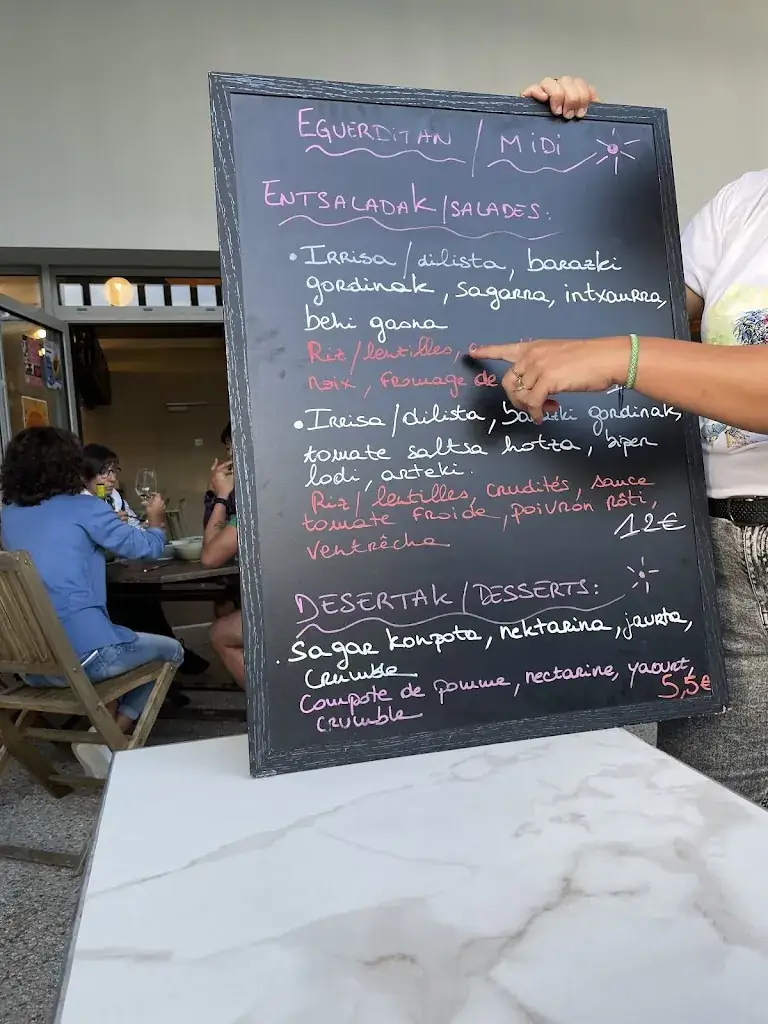 EGUERDITAN / MIDI
ENTSALADAK / SALADES:
• Irrisa / dilista, barazki
gordinak, sagarra, intxaurra,
behi gasna
Riz / lentilles,
noix, fromage de
• Irrisa / dilista, barazki gordinak,
tomate saltsa hotza, biper
lodi, arteki.
Riz / lentilles, crudités, sauce
tomate froide, poivron rôti,
ventrêche
12€
DESERTAK / DESSERTS:
. Sagar konpota, nektarina, jaurta,
crumble
Compote de pomme, nectarine, yaourt,
crumble
5,5€